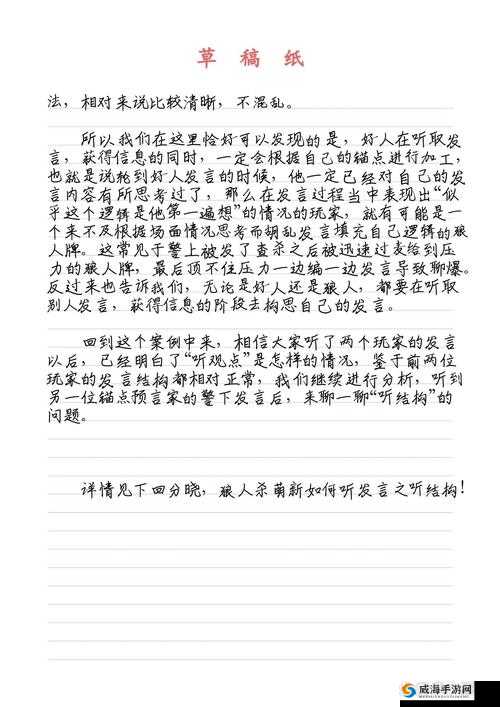 草 稿 纸
法，相对来说比较清晰，不混乱。
所以我们在这里恰好可以发现的是，好人在听取发
言，获得信息的同时，一定会根据自己的锚点进行加工，
也就是说轮到好人发言的时候，他一定已经对自己的发
言内容有所思考过了，那么在发言过程当中表现出“似
乎这个逻辑是他第一遍想”的情况的玩家，就有可能是一
个来不及根据场面情况思考而胡乱发言填充自己逻辑的狼
人牌。这常见于警上被发了查杀之后被迅速过麦给到压
力的狼人牌，最后顶不住压力一边编一边发言导致聊爆。
反过来也告诉我们，无论是好人还是狼人，都要在听取
别人发言，获得信息的阶段去构思自己的发言。
回到这个案例中来，相信大家听了两个玩家的发言
以后，已经明白了“听观点”是怎样的情况，鉴于前两位
玩家的发言结构都相对正常，我们继续进行分析，听到
另一位锚点预言家的警下发言后，来聊一聊“听结构”的
问题。
详情见下回分晓，狼人杀萌新如何听发言之听结构！
威海手游网